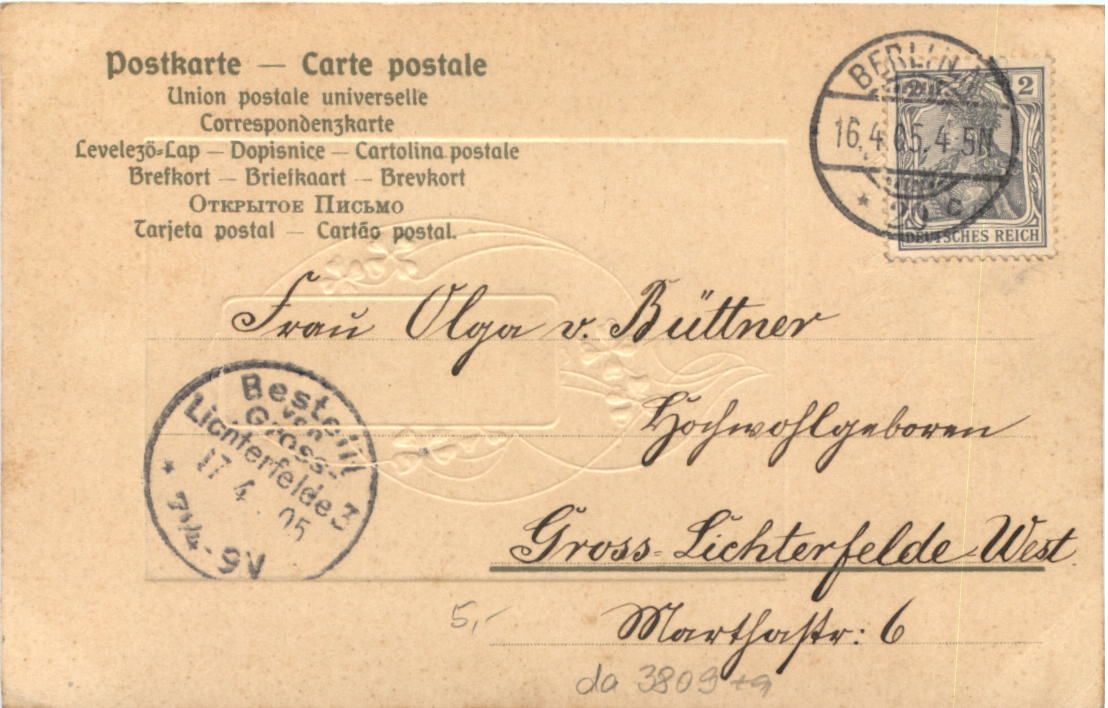 Postkarte — Carte postale
Union postale universelle
Correspondenzkarte
Levelező-Lap — Dopisnice — Cartolina postale
Brefkort — Briefkaart — Brevkort
Открытое Письмо
Tarjeta postal — Cartão postal.
BERLIN
16.4.05.4-5N
* 20 c
2 2
DEUTSCHES REICH
Frau Olga v. Büttner
Hochwohlgeboren
Gross-Lichterfelde-West.
Marthastr: 6
Bestellt
von
Gross-
Lichterfelde 3
17 4. 05
* 7¼-9V
5,-
da 3809